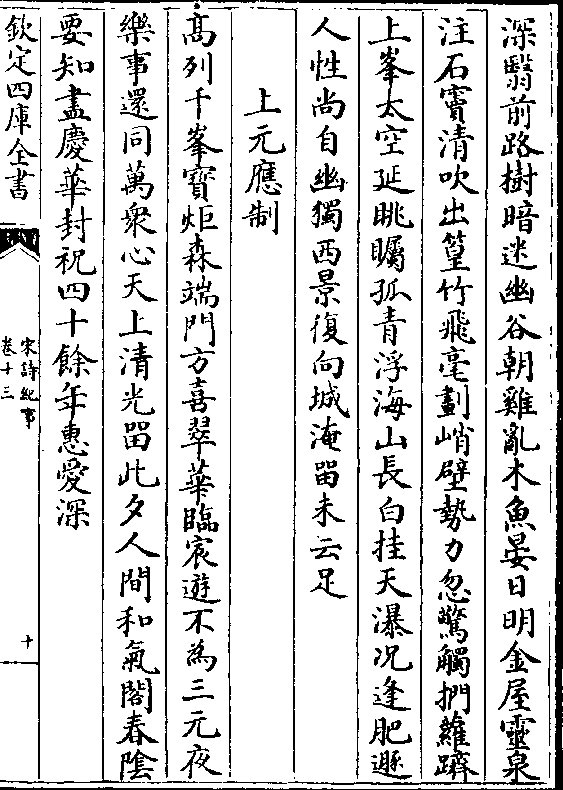 深翳前路樹暗迷幽谷朝雞亂木魚晏日明金屋靈泉
注石竇清吹出篁竹飛毫劃峭壁勢力忽驚觸捫蘿躋
上峯太空延眺矚孤青浮海山長白挂天瀑况逢肥遯
人性尚自幽獨西景復向城淹留未云足
上元應制
髙列千峯寳炬森端門方喜翠華臨宸遊不為三元夜
樂事還同萬衆心天上清光留此夕人間和氣閣春隂
要知盡慶華封祝四十餘年惠愛深
欽定四庫全書
宋詩紀事
卷十三
十